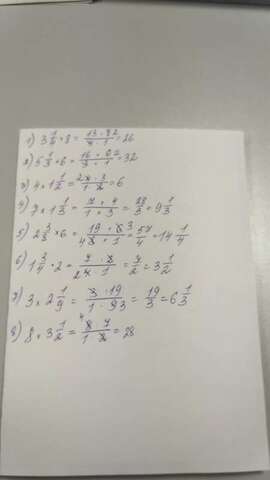 1) 3 1/4 × 8 = 13 · 8 2 / 4 · 1 = 26
2) 5 1/3 × 6 = 16 × 6 2 / 3 · 1 = 32
3) 4 × 1 1/2 = 2 4 × 3 / 1 · 2 = 6
4) 7 × 1 1/3 = 7 × 4 / 1 × 3 = 28/3 = 9 1/3
5) 2 3/8 × 6 = 19 × 6 3 / 4 8 × 1 = 57/4 = 14 1/4
6) 1 3/4 · 2 = 7 · 2 / 2 4 · 1 = 7/2 = 3 1/2
7) 3 × 2 1/9 = 3 · 19 / 1 · 9 3 = 19/3 = 6 1/3
8) 8 × 3 1/2 = 4 8 · 7 / 1 · 2 = 28